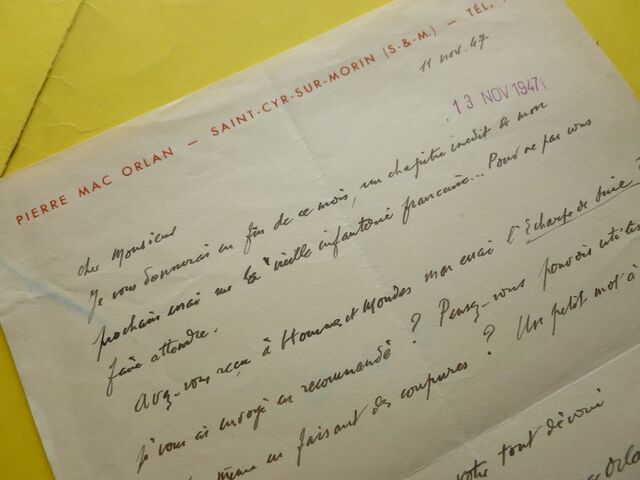 PIERRE MAC ORLAN — SAINT-CYR-SUR-MORIN (S.-&-M.) — TÉL.
11 nov. 47
13 NOV 1947
cher Monsieur
Je vous donnerai en fin de ce mois, un chapitre inédit de mon
prochain essai sur la "vieille infanterie française... Pour ne pas vous
faire attendre.
Avez-vous reçu à Hommes et Mondes mon essai l'Echarpe de Suie
j'vous ai envoyé en recommandé ? Pensez-vous pouvoir utiliser
même en faisant des coupures ? Un petit mot à
votre tout dévoué
Orlan